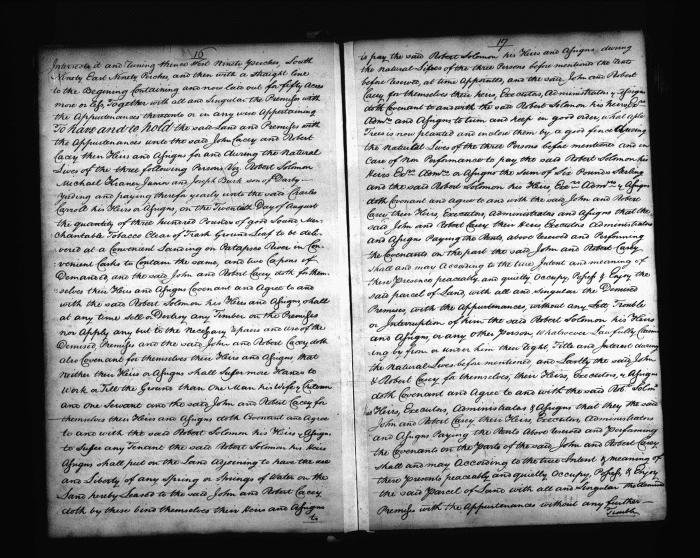 16
Intersects it and turning thence West Ninety Perches, South
Ninety East Ninety Perches, and then with a straight line
to the Beginning Containing and now laid out for fifty acres
more or less Together with all and Singular the Premises with
the Appurtenances thereunto or in any wise Appertaining
To have and to hold the said Land and Premises with
the Appurtenances unto the said John Cacey and Robert
Cacey their Heirs and Assigns for and during the Natural
Lives of the three following Persons Viz. Robert Solomon
Michael James and Joseph Burk son of Darby
Yielding and paying therefor yearly unto the said Charles
Carroll his Heirs or Assigns, on the Twentieth Day of August
the quantity of three hundred Pounds of good Sound Mer-
chantable Tobacco Clear of Trash Ground Leaf to be deliv-
ered at a Convenient Landing on Patapsco River in Con-
venient Casks to Contain the same, and two Capons if
Demanded, and the said John and Robert Cacey doth for them-
selves their Heirs and Assigns Covenant and Agree to and
with the said Robert Solomon his Heirs and Assigns, shall
at any time Sell or Destroy any Timber on the Premises
nor Apply any but to the Necessary repairs and use of the
Demised Premises and the said John and Robert Cacey doth
also Covenant for themselves their Heirs and Assigns that
neither their Heirs or Assigns shall Suffer more Hands to
Work or Till the Ground than One Man his Wife & Children
and One Servant and the said John and Robert Cacey for
themselves their Heirs and Assigns doth Covenant and Agree
to and with the said Robert Solomon his Heirs & Assigns
to Suffer any Tenant the said Robert Solomon his Heirs
Assigns shall put on the Land Adjoining to have the use
and Liberty of any Spring or Springs of Water on the
Land hereby Leased to the said John and Robert Cacey
doth by these bind themselves their Heirs and Assigns
to
17
is pay the said Robert Solomon his Heirs and Assigns during
the natural Lives of the three Persons before mentioned the Rents
before reserved, at time Appointed, and the said John and Robert
Cacey for themselves their heirs, Executors, Administrators & Assigns
doth Covenant to and with the said Robert Solomon his heirs Exrs
Admrs and Assigns to and keep in good order, what Apple
Trees is now planted and inclose them by a good fence during
the natural Lives of the three Persons before mentioned and in
Case of Non Performance to pay the said Robert Solomon his
heirs Exrs. Admrs. or Assigns the Sum of Six Pounds Sterling
and the said Robert Solomon his Heirs Exrs. Admrs. & Assigns
doth Covenant and agree to and with the said John and Robert
Cacey their Heirs, Executors, Administrators and Assigns that the
said John and Robert Cacey their heirs Executors Administrators
and Assigns Paying the Rents, above reserved and Performing
the Covenants on the part the said John and Robert Cacey
shall and may According to the true Intent and meaning of
these Presence peaceably and quietly Occupy, Possess & Enjoy the
said parcel of Land, with all and Singular the Demised
Premises, with the Appurtenances without any Lett, Trouble
or Interruption of him the said Robert Solomon his Heirs
and Assigns, or any other Person Whatsoever Lawfully Claim-
ing by from or under him their Right Title and Interest during
the Natural Lives before mentioned and Lastly the said John
& Robert Cacey for themselves, their Heirs, Executors, & Assigns
doth Covenant and Agree to and with the said Robt Solomn
his Heirs, Executors, Administrators & Assigns that they the said
John and Robert Cacey their Heirs, Executors, Administrators
and Assigns Paying the Rents Above reserved and Performing
the Covenant on the Parts of the said, John and Robert Cacey
shall and may According to the true Intent & meaning of
these Presents peaceably and quietly Occupy, Possess, & Enjoy
the said Parcel of Land with all and Singular the Demised
Premises with the Appurtenances without any further
Trouble